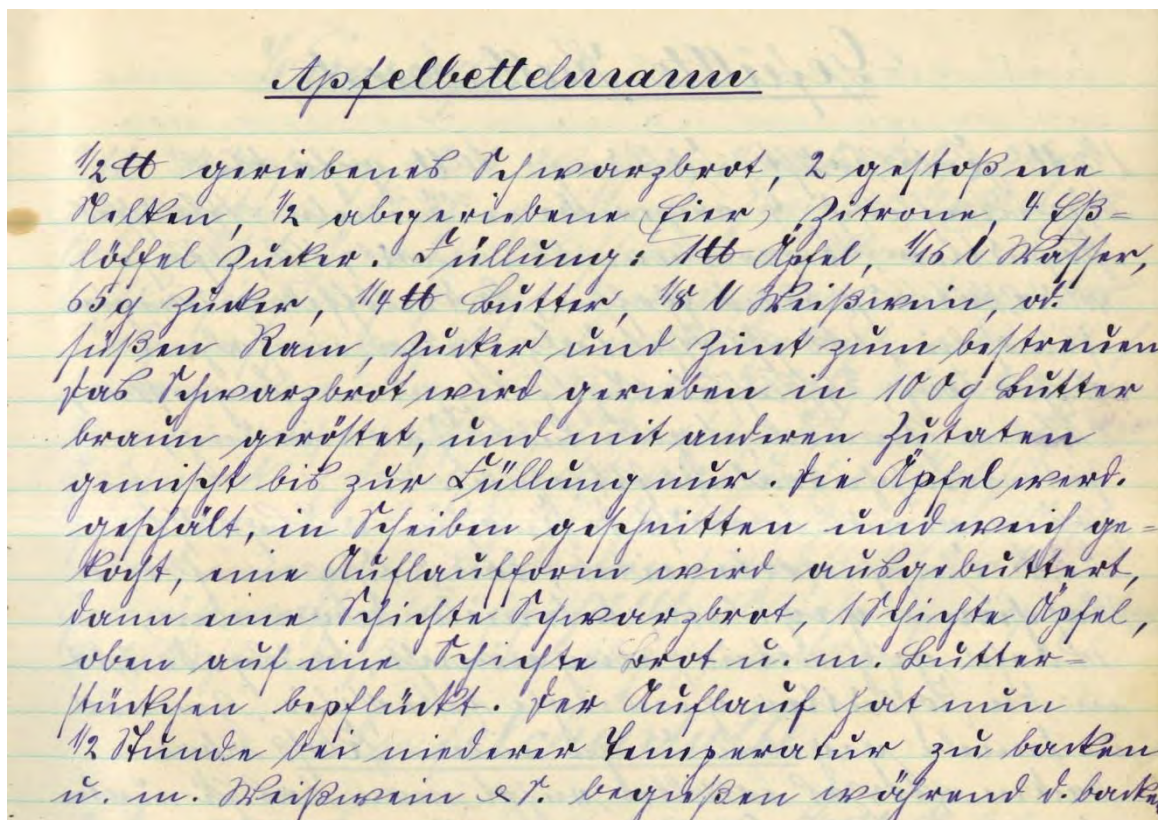 Apfelbettelmann
1/2 ℔ geriebenes Schwarzbrot, 2 gestoßene
Nelken, 1/2 abgeriebene (Eier) Zitrone, 4 Eß-
löffel Zucker. Füllung: 1 ℔ Äpfel, 1/16 l Wasser,
65 g Zucker, 1/4 ℔ Butter, 1/8 l Weißwein, od.
süßen Ram, Zucker und Zimt zum bestreuen
Das Schwarzbrot wird gerieben in 100 g Butter
braun geröstet, und mit anderen Zutaten
gemischt bis zur Füllung nur. Die Äpfel werd.
geschält, in Scheiben geschnitten und weich ge-
kocht, eine Auflaufform wird ausgebuttert,
dann eine Schichte Schwarzbrot, 1 Schichte Äpfel,
oben auf eine Schichte Brot u. m. Butter-
stückchen bepflückt. Der Auflauf hat nun
1/2 Stunde bei niederer Temperatur zu backen
u. m. Weißwein begießen während d. backen